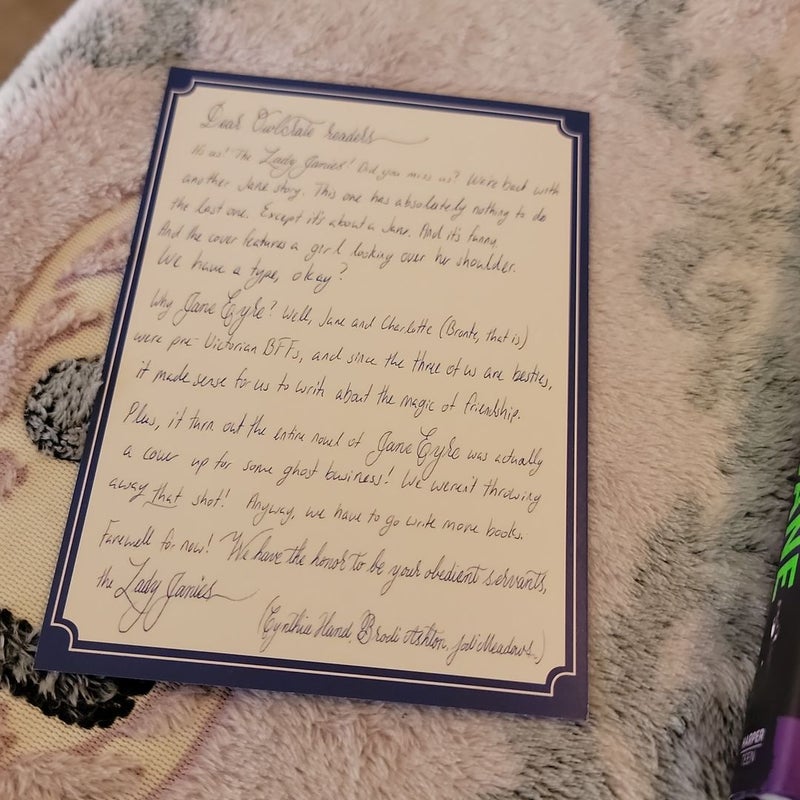 Dear Owlcrate readers
Hi us! The Lady Janies! Did you miss us? We're back with
another Jane story. This one has absolutely nothing to do
the last one. Except it's about a Jane. And it's funny.
And the cover features a girl looking over her shoulder.
We have a type, okay?
Why Jane Eyre? Well, Jane and Charlotte (Bronte, that is)
were pre-Victorian BFFs, and since the three of us are besties,
it made sense for us to write about the magic of friendship.
Plus, it turn out the entire novel of Jane Eyre was actually
a cover up for some ghost business! We weren't throwing
away that shot! Anyway, we have to go write more books.
Farewell for now! We have the honor to be your obedient servants,
the Lady Janies
(Cynthia Hand, Brodi Ashton, Jodi Meadows.)
ANE
HARPER
TEEN